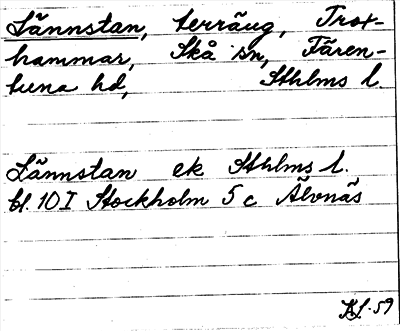 Lännstan, terräng, Trox-
hammar, Skå sn, Fären-
tuna hd, Sthlms l.
Lännstan ek Sthlms l.
bl. 10 I Stockholm 5 c Älvnäs
Kf. 59